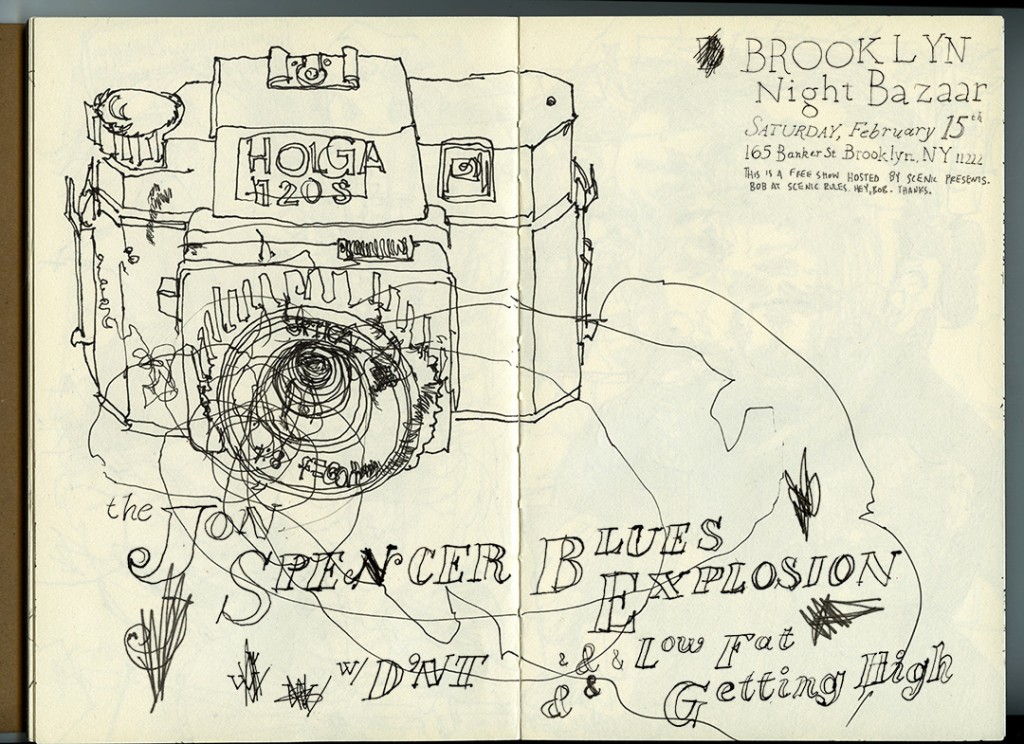 BROOKLYN
Night Bazaar
SATURDAY, February 15th
165 Banker St Brooklyn, NY 11222
THIS IS A FREE SHOW HOSTED BY SCENIC PRESENTS.
BOB AT SCENIC RULES. HEY, BOB. THANKS.
HOLGA
120S
1:8 F=60mm
the JON
SPENCER BLUES
EXPLOSION
w/ D'NT & & & Low Fat
& & Getting High